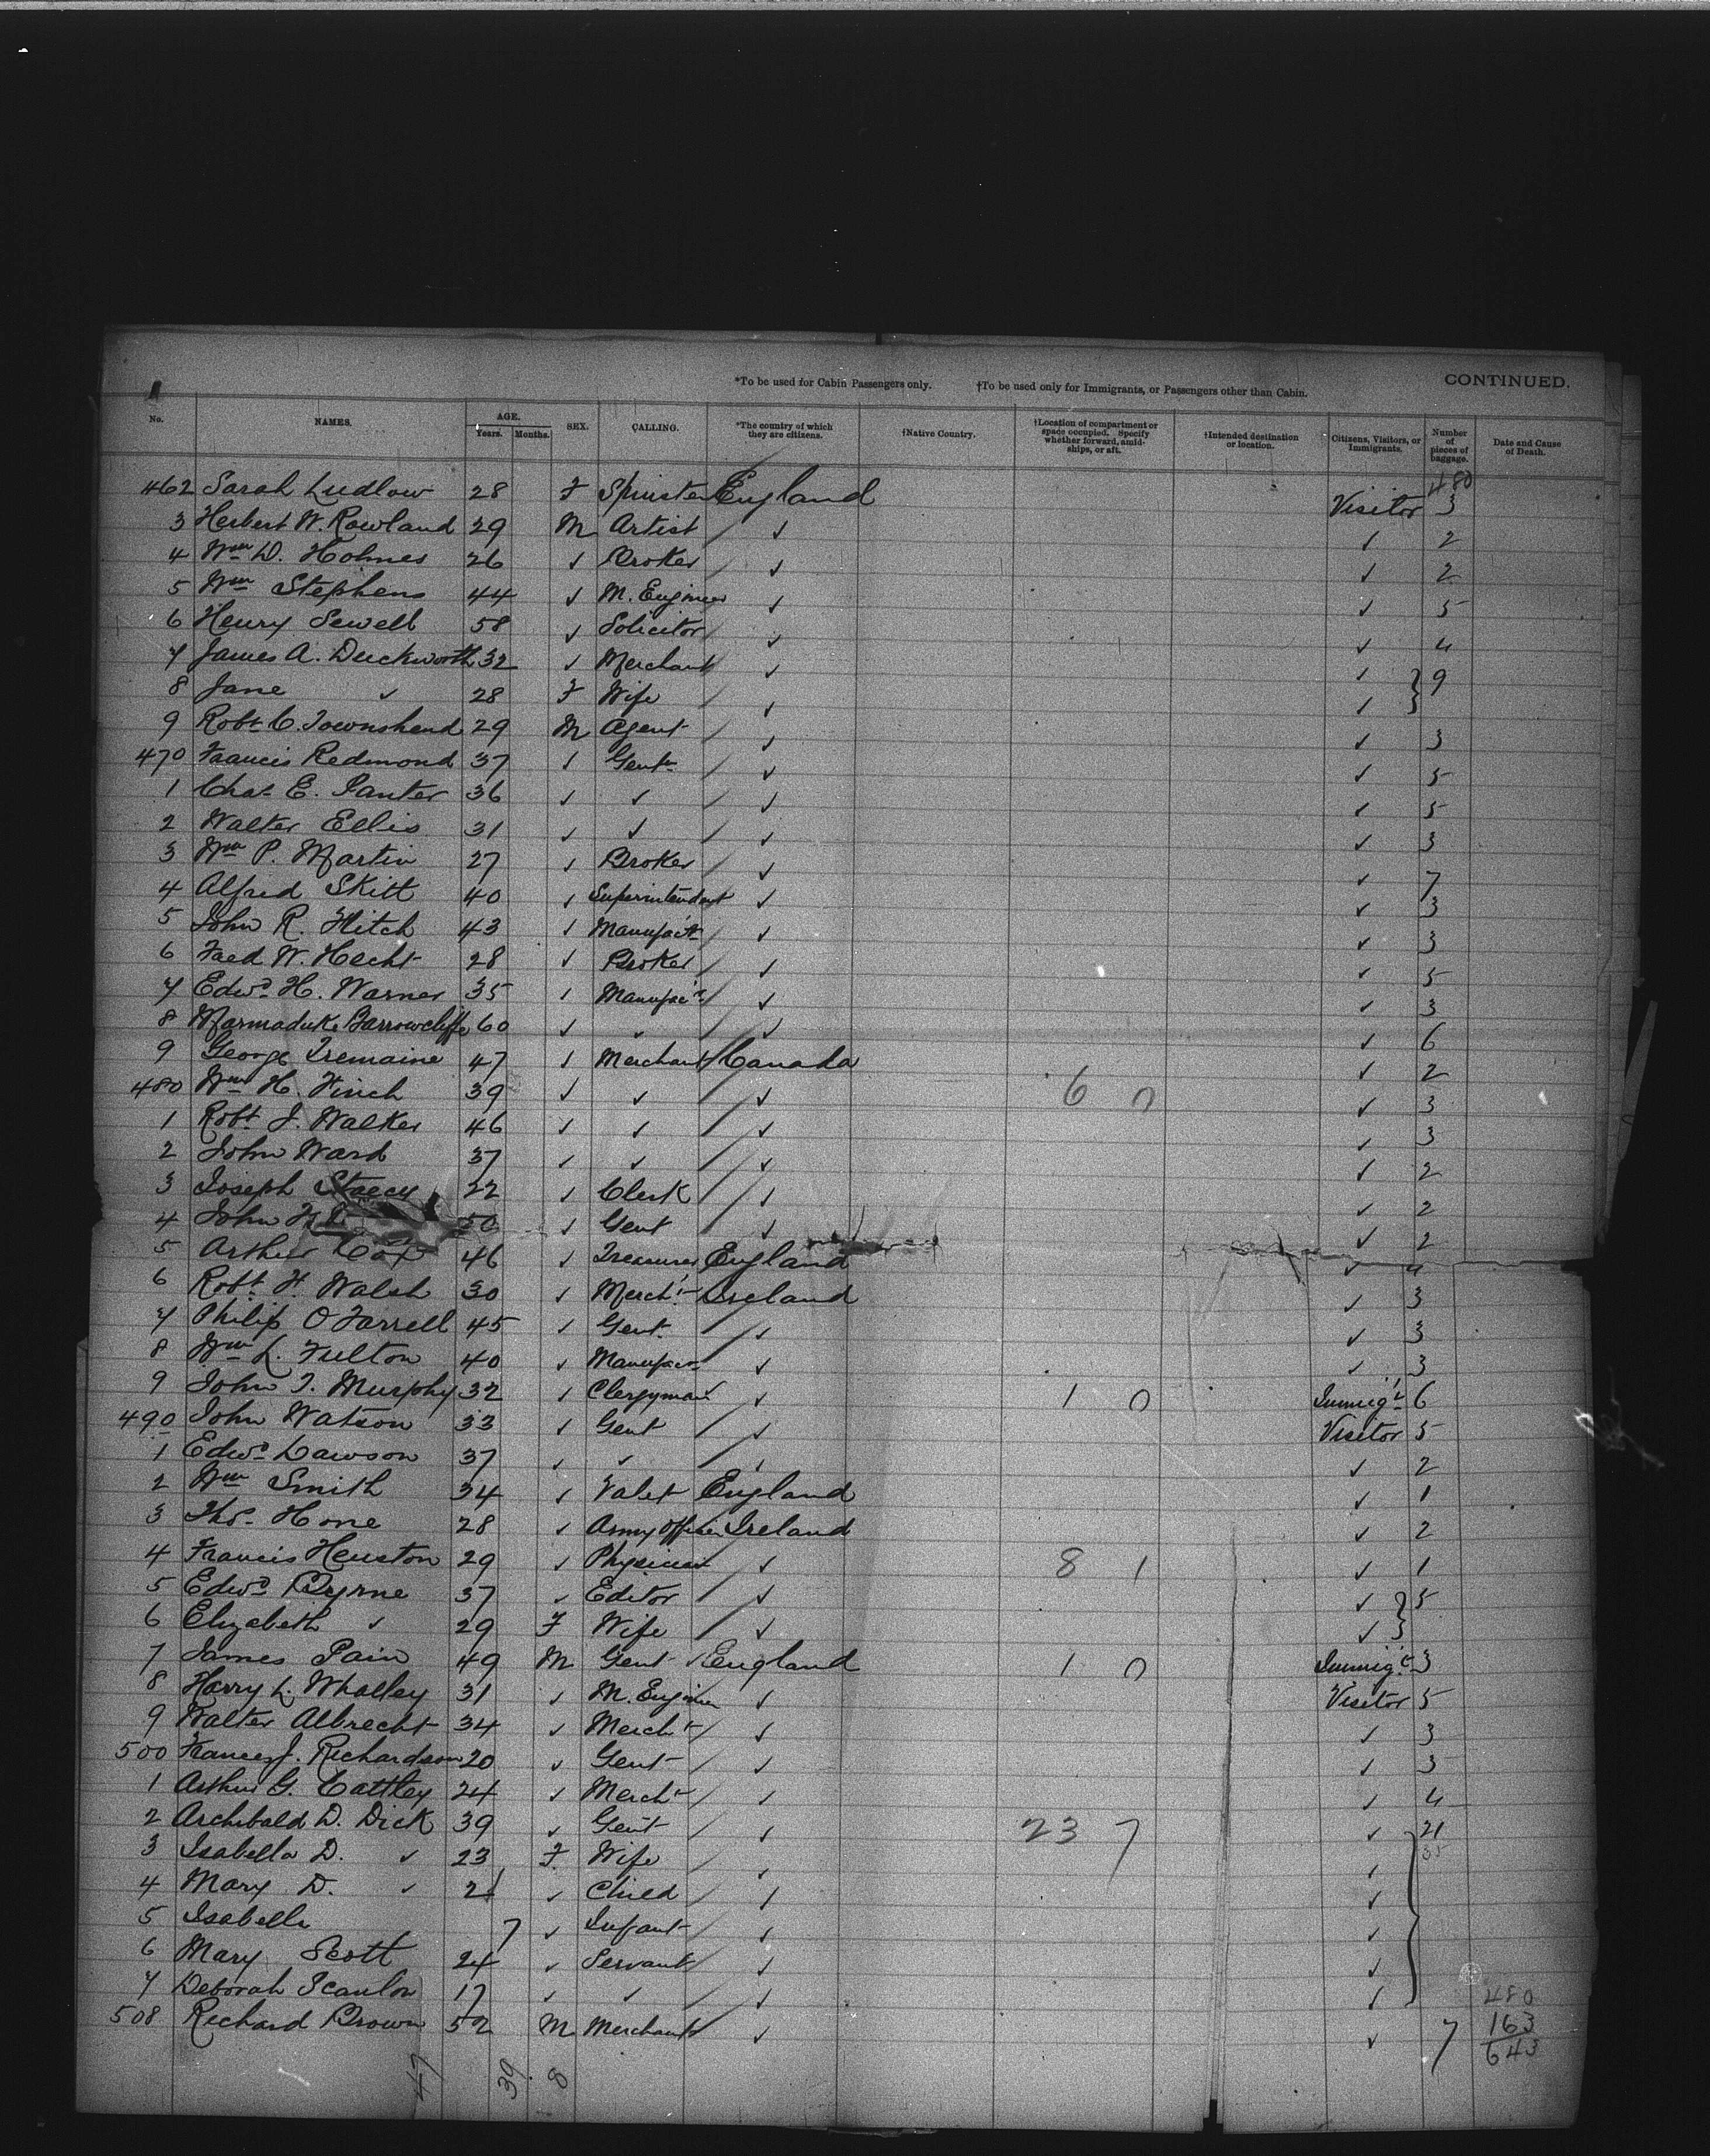 *To be used for Cabin Passengers only. †To be used only for Immigrants, or Passengers other than Cabin. CONTINUED.
No. NAMES. AGE. Years. Months. SEX. CALLING. *The country of which they are citizens. †Native Country. †Location of compartment or space occupied. Specify whether forward, amidships, or aft. †Intended destination or location. Citizens, Visitors, or Immigrants. Number of pieces of baggage. Date and Cause of Death.
480
462 Sarah Ludlow 28 F Spinster England Visitor 3
3 Herbert W. Rowland 29 M Artist ✓ ✓ 2
4 Wm D. Holmes 26 ✓ Broker ✓ ✓ 2
5 Wm Stephens 44 ✓ M. Engineer ✓ ✓ 5
6 Henry Sewell 58 ✓ Solicitor ✓ ✓ 4
7 James A. Duckworth 32 ✓ Merchant ✓ ✓ 9
8 Jane ✓ 28 F Wife ✓ ✓
9 Robt C. Townshend 29 M Agent ✓ ✓ 3
470 Francis Redmond 37 ✓ Gent ✓ ✓ 5
1 Chas E. Panter 36 ✓ ✓ ✓ ✓ 5
2 Walter Ellis 31 ✓ ✓ ✓ ✓ 3
3 Wm P. Martin 27 ✓ Broker ✓ ✓ 7
4 Alfred Skitt 40 ✓ Superintendent ✓ ✓ 3
5 John R. Hitch 43 ✓ Manufactr ✓ ✓ 3
6 Fred W. Hecht 28 ✓ Broker ✓ ✓ 5
7 Edwd H. Warner 35 ✓ Manufacr ✓ ✓ 3
8 Marmaduke Barrowcliffe 60 ✓ ✓ ✓ ✓ 6
9 George Tremaine 47 ✓ Merchant Canada ✓ 2
480 Wm H. Finch 39 ✓ ✓ ✓ 6 0 ✓ 3
1 Robt J. Walker 46 ✓ ✓ ✓ ✓ 3
2 John Ward 37 ✓ ✓ ✓ ✓ 2
3 Joseph Stacey 22 ✓ Clerk ✓ ✓ 2
4 John 50 ✓ Gent ✓ ✓ 2
5 Arthur Cox 46 ✓ Treasurer England ✓ 4
6 Robt H. Walsh 30 ✓ Mercht Ireland ✓ 3
7 Philip O'Farrell 45 ✓ Gent ✓ ✓ 3
8 Wm L. Fulton 40 ✓ Manufacr ✓ ✓ 3
9 John T. Murphy 32 ✓ Clergyman ✓ 1 0 Immigt 6
490 John Watson 33 ✓ Gent ✓ Visitor 5
1 Edwd Lawson 37 ✓ ✓ ✓ ✓ 2
2 Wm Smith 34 ✓ Valet England ✓ 1
3 Thos Hone 28 ✓ Army Officer Ireland ✓ 2
4 Francis Heuston 29 ✓ Physician ✓ 8 1 ✓ 1
5 Edwd Byrne 37 ✓ Editor ✓ ✓ 5
6 Elizabeth ✓ 29 F Wife ✓ ✓
7 James Pain 49 M Gent England 1 0 Immigt 3
8 Harry L. Whalley 31 ✓ M. Engineer ✓ Visitor 5
9 Walter Albrecht 34 ✓ Mercht ✓ ✓ 3
500 Frances J. Richardson 20 ✓ Gent ✓ ✓ 3
1 Arthur G. Cattley 24 ✓ Mercht ✓ ✓ 4
2 Archibald D. Dick 39 ✓ Gent ✓ 23 7 ✓ 21
3 Isabella D. ✓ 23 F Wife ✓ ✓ 35
4 Mary D. ✓ 2 ✓ Child ✓ ✓
5 Isabella 7 ✓ Infant ✓ ✓
6 Mary Scott 24 ✓ Servant ✓ ✓
7 Deborah Scanlon 17 ✓ ✓ ✓ ✓
508 Richard Brown 52 M Merchant ✓ ✓ 7
480
163
643
47 39 8